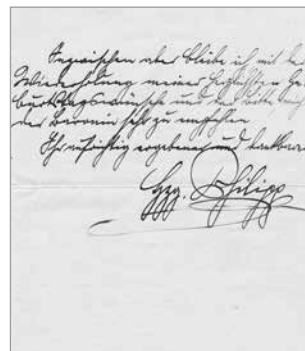 Inzwischen aber bleibe ich mit der
Wiederholung meiner herzlichsten Ge-
burtstagswünsche und der Bitte, mich
der Baronin sehr zu empfehlen
Ihr aufrichtig ergebener und dankbarer
Hzg. Philipp